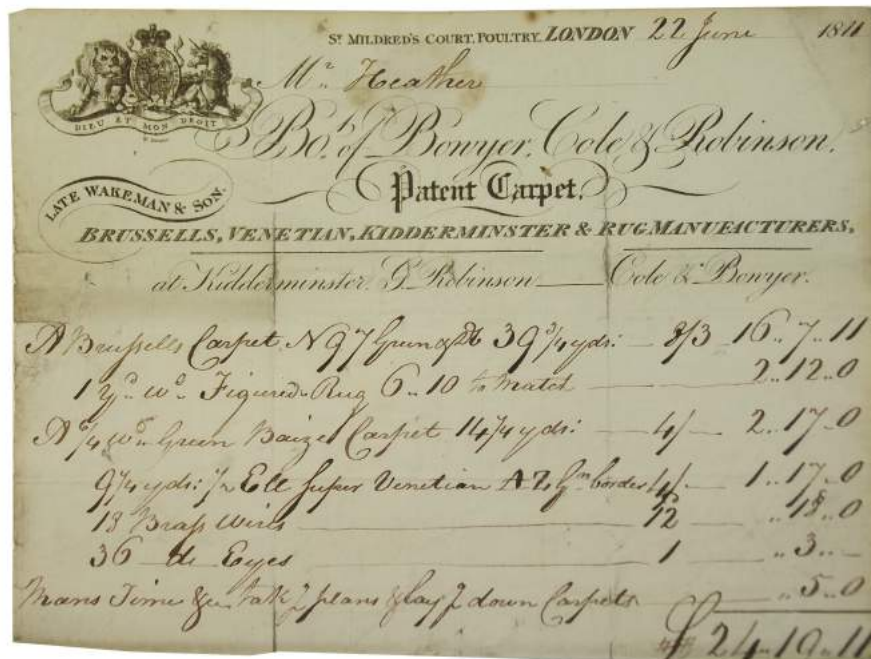 St MILDRED'S COURT, POULTRY, LONDON 22 June 1811
Mr. Heather
DIEU ET MON DROIT
Bot. of Bowyer, Cole & Robinson.
LATE WAKEMAN & SON.
Patent Carpet.
BRUSSELLS, VENETIAN, KIDDERMINSTER & RUG MANUFACTURERS,
at Kidderminster. G. Robinson Cole & Bowyer.
A Brussells Carpet N 97 Green 39 3/4 yds: 8/3 16..7..11
1 yd. wd. Figured Rug 6..10 to match 2..12..0
A 6/4 wd. Green Baize Carpet 14 1/4 yds: 4/ 2..17..0
9 1/4 yds: 1/2 Ell super Venetian Gn. border 4/ 1..17..0
18 Brass Wires 12 ..18..0
36 do Eyes 1 ..3..
Mans Time &c. tak.g plans & lay.g down Carpets ..5..0
£24..19..11